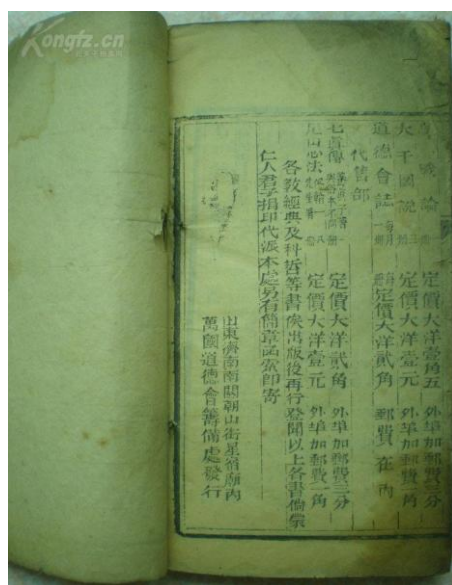 Kongfz.cn
戰論 定價大洋壹角五 外埠加郵費三分
大千圖說 定價大洋壹元 外埠加郵費一角
道德會誌 每月一冊 定價大洋貳角 郵費在內
代售部
七真傳 定價大洋貳角 外埠加郵費三分
定價大洋壹元 外埠加郵費一角
各教經典及科哲等書俟出版後再行登聞以上各書倘蒙
仁人君子捐印代派本處另有簡章函索即寄
山東濟南南關朝山街星宿廟內
萬國道德會籌備處發行